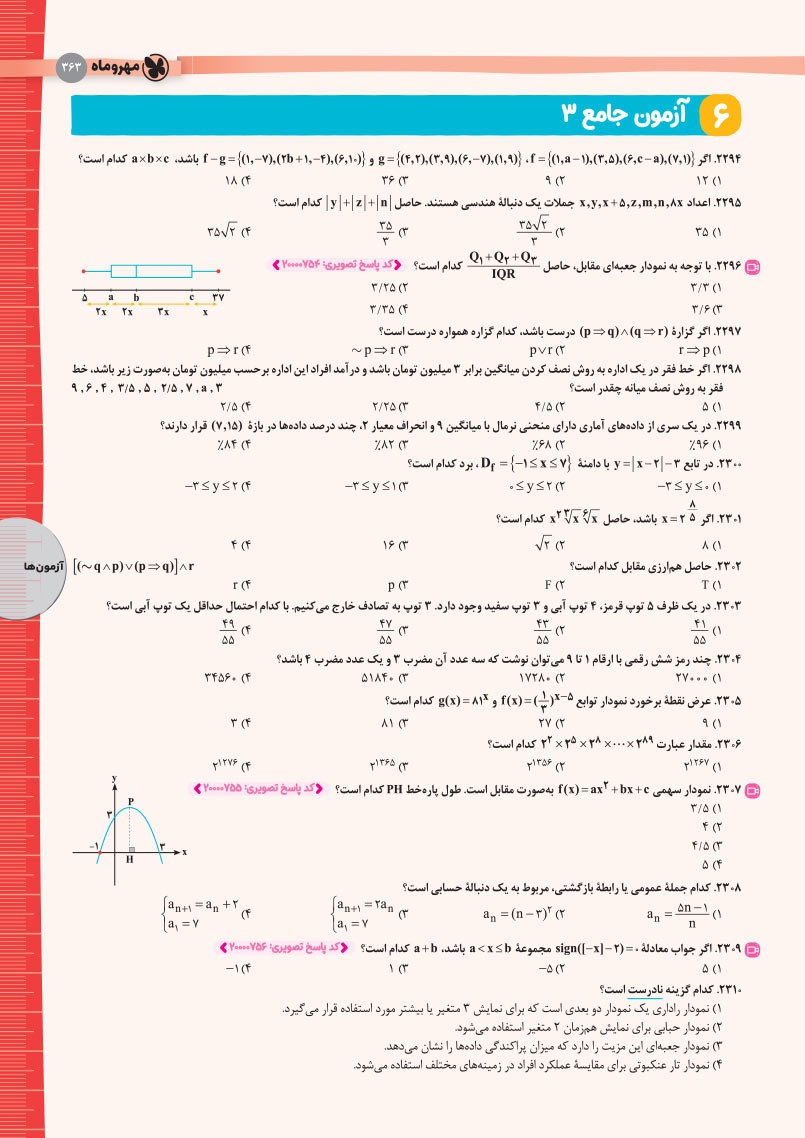 مهروماه ۳۶۳
۶ آزمون جامع ۳
۲۲۹۴. اگر f = {(۱,a−۱),(۳,۵),(۶,c−a),(۷,۱)}، g = {(۴,۲),(۳,۹),(۶,−۷),(۱,۹)} و f−g = {(۱,−۷),(۲b+۱,−۴),(۶,۱۰)} باشد، a×b×c کدام است؟
۱) ۱۲ ۲) ۹ ۳) ۳۶ ۴) ۱۸
۲۲۹۵. اعداد x,y,x+۵,z,m,n,۸x جملات یک دنبالهٔ هندسی هستند. حاصل |y|+|z|+|n| کدام است؟
۱) ۳۵ ۲) ۳۵√۲/۳ ۳) ۳۵/۳ ۴) ۳۵√۲
۲۲۹۶. با توجه به نمودار جعبه‌ای مقابل، حاصل (Q₁+Q₂+Q₃)/IQR کدام است؟ کد پاسخ تصویری: ۲۰۰۰۰۷۵۴
۱) ۳/۳ ۲) ۳/۲۵
۳) ۳/۶ ۴) ۳/۳۵
۵ a b c ۳۷
۲x ۲x ۳x x
۲۲۹۷. اگر گزارهٔ (p ⇒ q) ∧ (q ⇒ r) درست باشد، کدام گزاره همواره درست است؟
۱) r ⇒ p ۲) p ∨ r ۳) ~p ⇒ r ۴) p ⇒ r
۲۲۹۸. اگر خط فقر در یک اداره به روش نصف کردن میانگین برابر ۳ میلیون تومان باشد و درآمد افراد این اداره برحسب میلیون تومان به‌صورت زیر باشد، خط
فقر به روش نصف میانه چقدر است؟ ۹ , ۶ , ۴ , ۳/۵ , ۵ , ۲/۵ , ۷ , a , ۳
۱) ۵ ۲) ۴/۵ ۳) ۲/۲۵ ۴) ۲/۵
۲۲۹۹. در یک سری از داده‌های آماری دارای منحنی نرمال با میانگین ۹ و انحراف معیار ۲، چند درصد داده‌ها در بازهٔ (۷,۱۵) قرار دارند؟
۱) ٪۹۶ ۲) ٪۶۸ ۳) ٪۸۲ ۴) ٪۸۴
۲۳۰۰. در تابع y = |x−۲|−۳ با دامنهٔ D_f = {−۱ ≤ x ≤ ۷}، برد کدام است؟
۱) −۳ ≤ y ≤ ۰ ۲) ۰ ≤ y ≤ ۲ ۳) −۳ ≤ y ≤ ۱ ۴) −۳ ≤ y ≤ ۲
۲۳۰۱. اگر x = ۲^(۸/۵) باشد، حاصل x² ∛x ⁶√x کدام است؟
۱) ۸ ۲) √۲ ۳) ۱۶ ۴) ۴
۲۳۰۲. حاصل هم‌ارزی مقابل کدام است؟ [(~q ∧ p) ∨ (p ⇒ q)] ∧ r
آزمون‌ها
۱) T ۲) F ۳) p ۴) r
۲۳۰۳. در یک ظرف ۵ توپ قرمز، ۴ توپ آبی و ۳ توپ سفید وجود دارد. ۳ توپ به تصادف خارج می‌کنیم. با کدام احتمال حداقل یک توپ آبی است؟
۱) ۴۱/۵۵ ۲) ۴۳/۵۵ ۳) ۴۷/۵۵ ۴) ۴۹/۵۵
۲۳۰۴. چند رمز شش رقمی با ارقام ۱ تا ۹ می‌توان نوشت که سه عدد آن مضرب ۳ و یک عدد مضرب ۴ باشد؟
۱) ۲۷۰۰۰ ۲) ۱۷۲۸۰ ۳) ۵۱۸۴۰ ۴) ۳۴۵۶۰
۲۳۰۵. عرض نقطهٔ برخورد نمودار توابع f(x) = (۱/۳)^(x−۵) و g(x) = ۸۱^x کدام است؟
۱) ۹ ۲) ۲۷ ۳) ۸۱ ۴) ۳
۲۳۰۶. مقدار عبارت ۲^۲ × ۲^۵ × ۲^۸ × ⋯ × ۲^۸۹ کدام است؟
۱) ۲^۱۲۶۷ ۲) ۲^۱۳۵۶ ۳) ۲^۱۳۶۵ ۴) ۲^۱۲۷۶
۲۳۰۷. نمودار سهمی f(x) = ax²+bx+c به‌صورت مقابل است. طول پاره‌خط PH کدام است؟ کد پاسخ تصویری: ۲۰۰۰۰۷۵۵
۱) ۳/۵
۲) ۴
۳) ۴/۵
۴) ۵
y P ۳ −۱ H ۳ x
۲۳۰۸. کدام جملهٔ عمومی یا رابطهٔ بازگشتی، مربوط به یک دنبالهٔ حسابی است؟
۱) aₙ = (۵n−۱)/n ۲) aₙ = (n−۳)² ۳) {aₙ₊₁ = ۲aₙ , a₁ = ۷ ۴) {aₙ₊₁ = aₙ + ۲ , a₁ = ۷
۲۳۰۹. اگر جواب معادلهٔ sign([−x]−۲) = ۰ مجموعهٔ a < x ≤ b باشد، a+b کدام است؟ کد پاسخ تصویری: ۲۰۰۰۰۷۵۶
۱) ۵ ۲) −۵ ۳) ۱ ۴) −۱
۲۳۱۰. کدام گزینه نادرست است؟
۱) نمودار راداری یک نمودار دو بعدی است که برای نمایش ۳ متغیر یا بیشتر مورد استفاده قرار می‌گیرد.
۲) نمودار حبابی برای نمایش هم‌زمان ۲ متغیر استفاده می‌شود.
۳) نمودار جعبه‌ای این مزیت را دارد که میزان پراکندگی داده‌ها را نشان می‌دهد.
۴) نمودار تار عنکبوتی برای مقایسهٔ عملکرد افراد در زمینه‌های مختلف استفاده می‌شود.